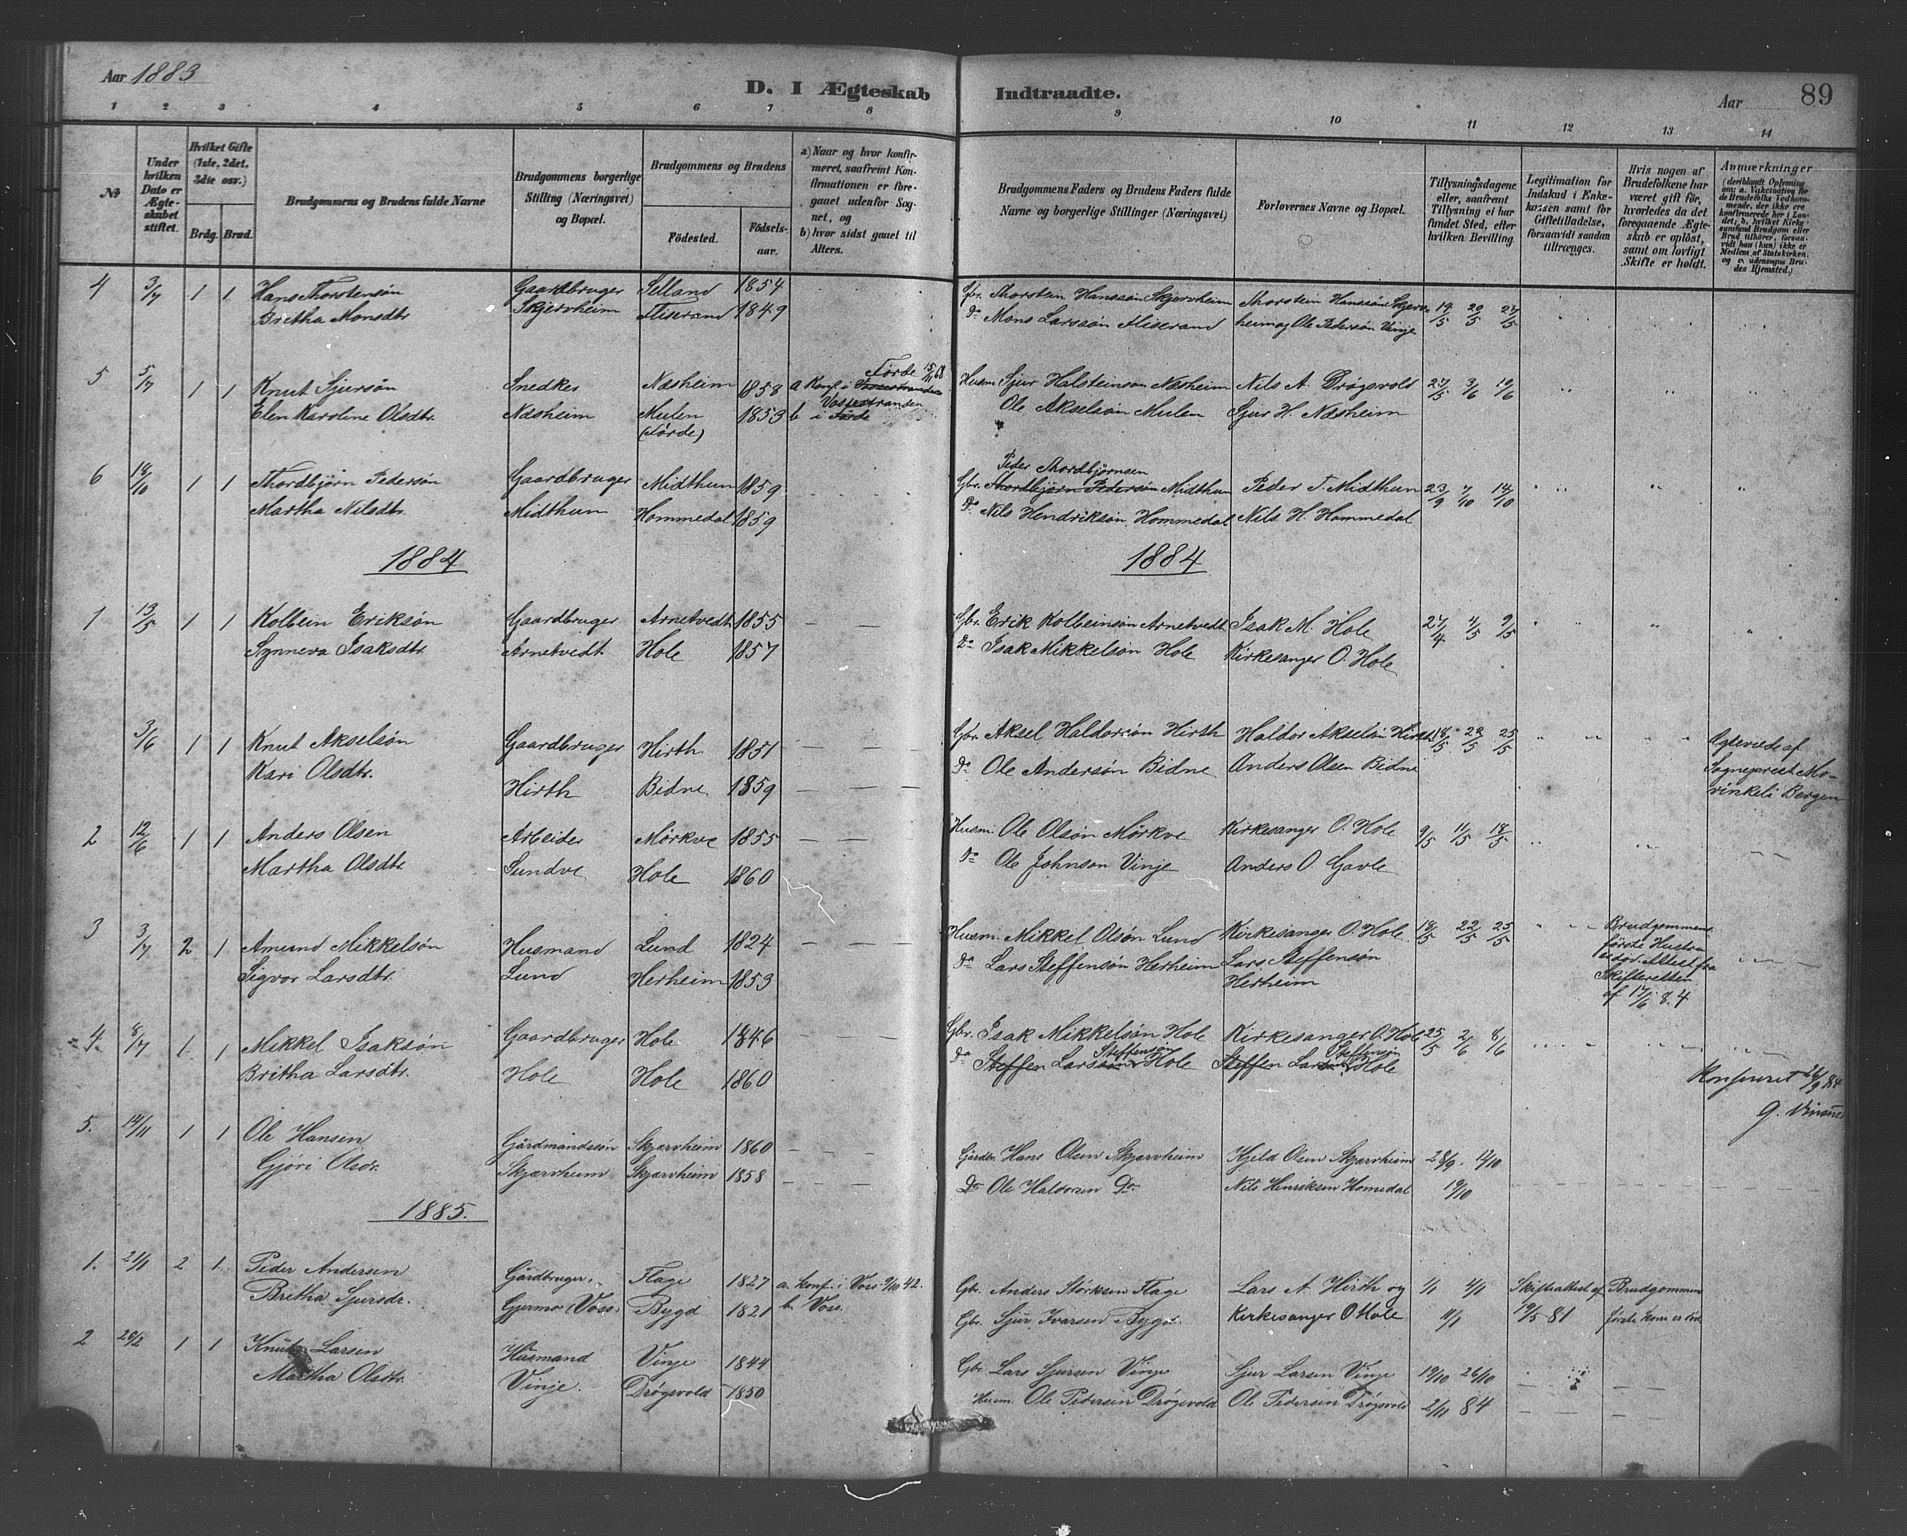 Aar 1883
D. I Ægteskab Indtraadte.
Aar 89
1 2 3 4 5 6 7 8 9 10 11 12 13 14
№
Under hvilken Dato er Ægteskabet stiftet.
Hvilket Gifte (1ste, 2det, 3die osv.)
Brdg. Brud.
Brudgommens og Brudens fulde Navne
Brudgommens borgerlige Stilling (Næringsvei) og Bopæl.
Brudgommens og Brudens
Fødested. Fødselsaar.
a) Naar og hvor konfirmeret, saafremt Konfirmationen er foregaaet udenfor Sognet, og
b) hvor sidst gaaet til Alters.
Brudgommens Faders og Brudens Faders fulde Navne og borgerlige Stillinger (Næringsvei)
Forlovernes Navne og Bopæl.
Tillysningsdagene eller, saafremt Tillysning ei har fundet Sted, efter hvilken Bevilling.
Legitimation for Indskud i Enkekassen samt for Giftetilladelse, forsaavidt saadan tiltrænges.
Hvis nogen af Brudefolkene har været gift før, hvorledes da det foregaaende Ægteskab er opløst, samt om lovligt Skifte er holdt.
Anmærkninger
4 3/7 1 1 Hans Thorstensøn Gaardbruger Selland 1854 Gbr. Thorstein Hanssøn Skjervheim Thorstein Hanssøn Skjerv- 18/5 20/5 27/5
Britha Monsdtr Skjervheim Fliserand 1849 Do Mons Larssøn Fliserand heim og Ole Pedersøn Vinje
5 5/7 1 1 Knut Sjursøn Snedker Næsheim 1858 a Konf. i Førde 15/11 68 Husm. Sjur Halsteinsøn Næsheim Nils A. Drøgsvold 27/5 3/6 10/6
Elen Karoline Olsdtr. Næsheim Mulen (Førde) 1853 b i Vossestranden Ole Akselsøn Mulen Sjur H. Næsheim
6 18/10 1 1 Thordbjørn Pedersøn Gaardbruger Midthun 1859 Gbr. Peder Thordbjørnsen Midthun Peder T. Midthun 23/9 7/10 14/10
Martha Nilsdtr. Midthun Hommedal 1859 Do Nils Hendriksøn Hommedal Nils H. Hommedal
1884 1884
1 13/5 1 1 Kolbein Eriksøn Gaardbruger Arnetvedt 1855 Gbr. Erik Kolbeinsøn Arnetvedt Isak M. Hole 27/4 4/5 9/5
Synneva Isaksdtr Arnetvedt Hole 1857 Do Isak Mikkelsøn Hole Kirkesanger O. Hole
3/6 1 1 Knut Akselsøn Gaardbruger Hirth 1851 Gbr. Aksel Haldorsøn Hirth Haldor Akselsøn Hirth 18/5 22/5 25/5 Egteviede af
Kari Olsdtr. Hirth Bidne 1859 Do Ole Andersøn Bidne Anders Olsen Bidne Sogneprest Mo-
vinkel i Bergen
2 12/6 1 1 Anders Olsen Arbeider Mørkve 1855 Husm. Ole Olsøn Mørkve Kirkesanger O. Hole 9/5 11/5 18/5
Martha Olsdtr. Sundve Hole 1860 Do Ole Johnson Vinje Anders O. Gavle
3 3/7 2 1 Amund Mikkelsøn Husmand Lund 1824 Husm. Mikkel Olsøn Lund Kirkesanger O. Hole 18/5 22/5 25/5 Brudgommens
Sigvor Larsdtr. Lund Herheim 1853 Do Lars Steffensøn Herheim Lars Steffensøn Herheim første Hustru
Attest fra
Skifteretten
af 17/6 84
4 8/7 1 1 Mikkel Isaksøn Gaardbruger Hole 1846 Gbr. Isak Mikkelsøn Hole Kirkesanger O. Hole 25/5 2/6 8/6
Britha Larsdtr. Hole Hole 1860 Do Steffen Larssøn Steffensøn Hole Steffen Larssøn Steffensøn Hole
Konfereret 26/9 84
5. 14/11 1 1 Ole Hansen Gårdmandssøn Skjærvheim 1860 Gårdbr. Hans Olsen Skjærvheim Kjeld Olsen Skjærvheim 28/9 12/10
Gjøri Olsdr. Skjærvheim Skjærvheim 1858 Do Ole Haldorsen Do Nils Henriksen Homedal 19/10
1885.
1. 21/1 2 1 Peder Andersen Gårdbruger Flage 1827 a. konf. i Voss 2/10 42. Gbr. Anders Størksen Flage Lars A. Hirth og 1/1 4/1 Skifteattest af Brudgommens
Britha Sjursdr. Gjermo (Voss) Bygd 1821 b Voss. Gbr. Sjur Ivarsen Bygd. Kirkesanger O Hole 11/1 19/5 81 første kone er død
2 26/2 1 1 Knut Larsen Husmand Vinje 1844 Gbr. Lars Sjursen Vinje Sjur Larsen Vinje 19/10 26/10
Martha Olsdtr. Vinje. Drøgsvold 1850 Husm. Ole Pedersen Drøgsvold Ole Pedersen Drøgsvold 2/11 84